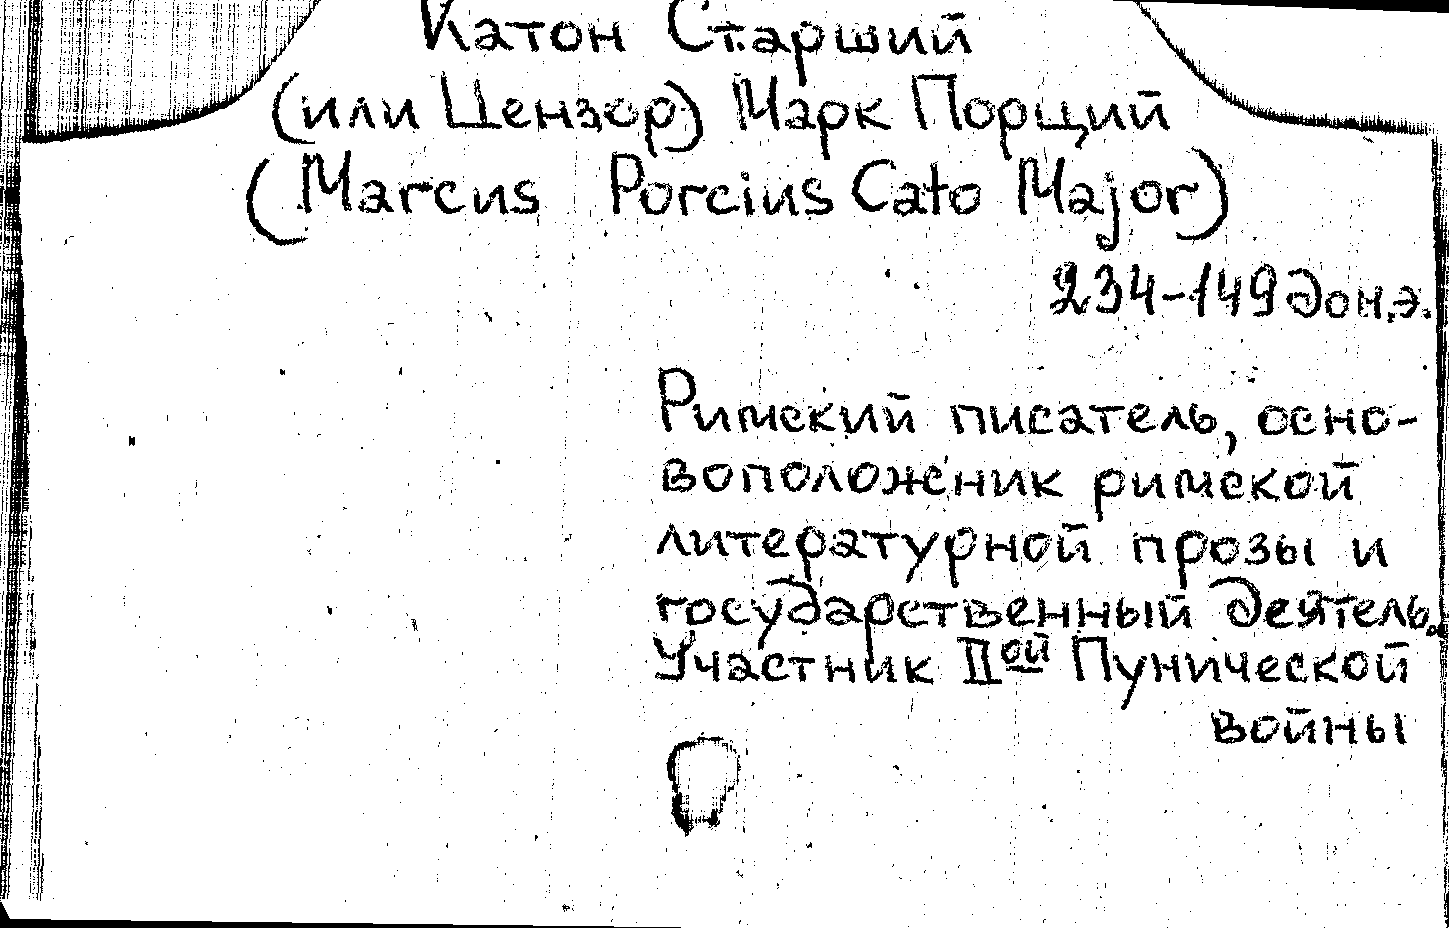 Катон Старший
(или Цензор) Марк Порций
(Marcus Porcius Cato Major)
234-149 до н.э.
Римский писатель, осно-
воположник римской
литературной прозы и
государственный деятель.
Участник IIой Пунической
войны